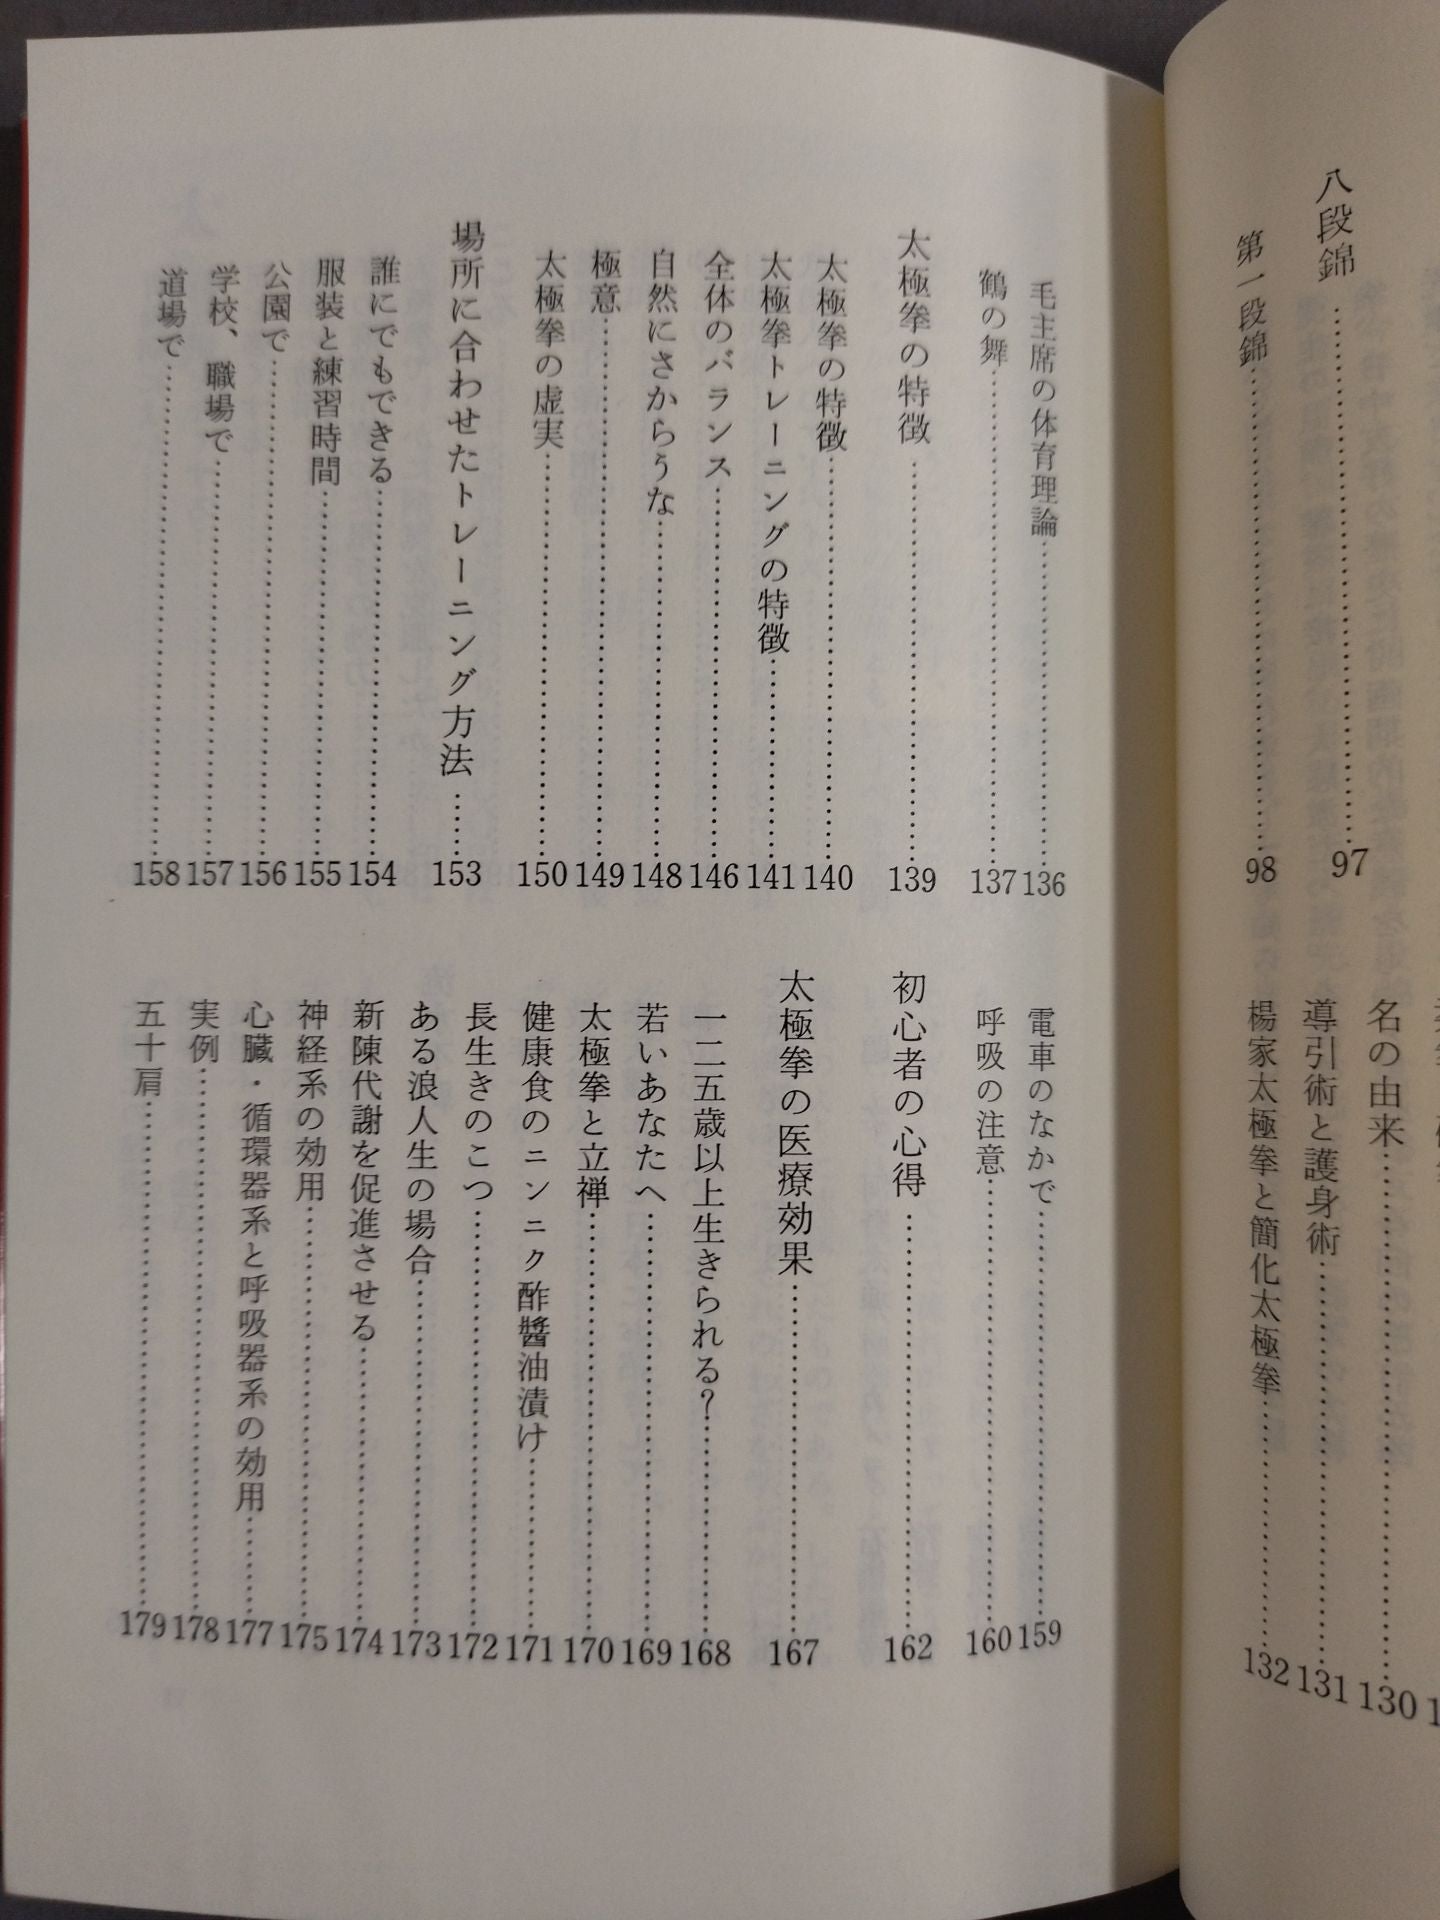 八段錦……97
第一段錦……98
名の由来……130
導引術と護身術……131
楊家太極拳と簡化太極拳……132
毛主席の体育理論……136
鶴の舞……137
太極拳の特徴……139
太極拳の特徴……140
太極拳トレーニングの特徴……141
全体のバランス……146
自然にさからうな……148
極意……149
太極拳の虚実……150
場所に合わせたトレーニング方法……153
誰にでもできる……154
服装と練習時間……155
公園で……156
学校、職場で……157
道場で……158
電車のなかで……159
呼吸の注意……160
初心者の心得……162
太極拳の医療効果……167
一二五歳以上生きられる?……168
若いあなたへ……169
太極拳と立禅……170
健康食のニンニク酢醬油漬け……171
長生きのこつ……172
ある浪人生の場合……173
新陳代謝を促進させる……174
神経系の効用……175
心臓・循環器系と呼吸器系の効用……177
実例……178
五十肩……179